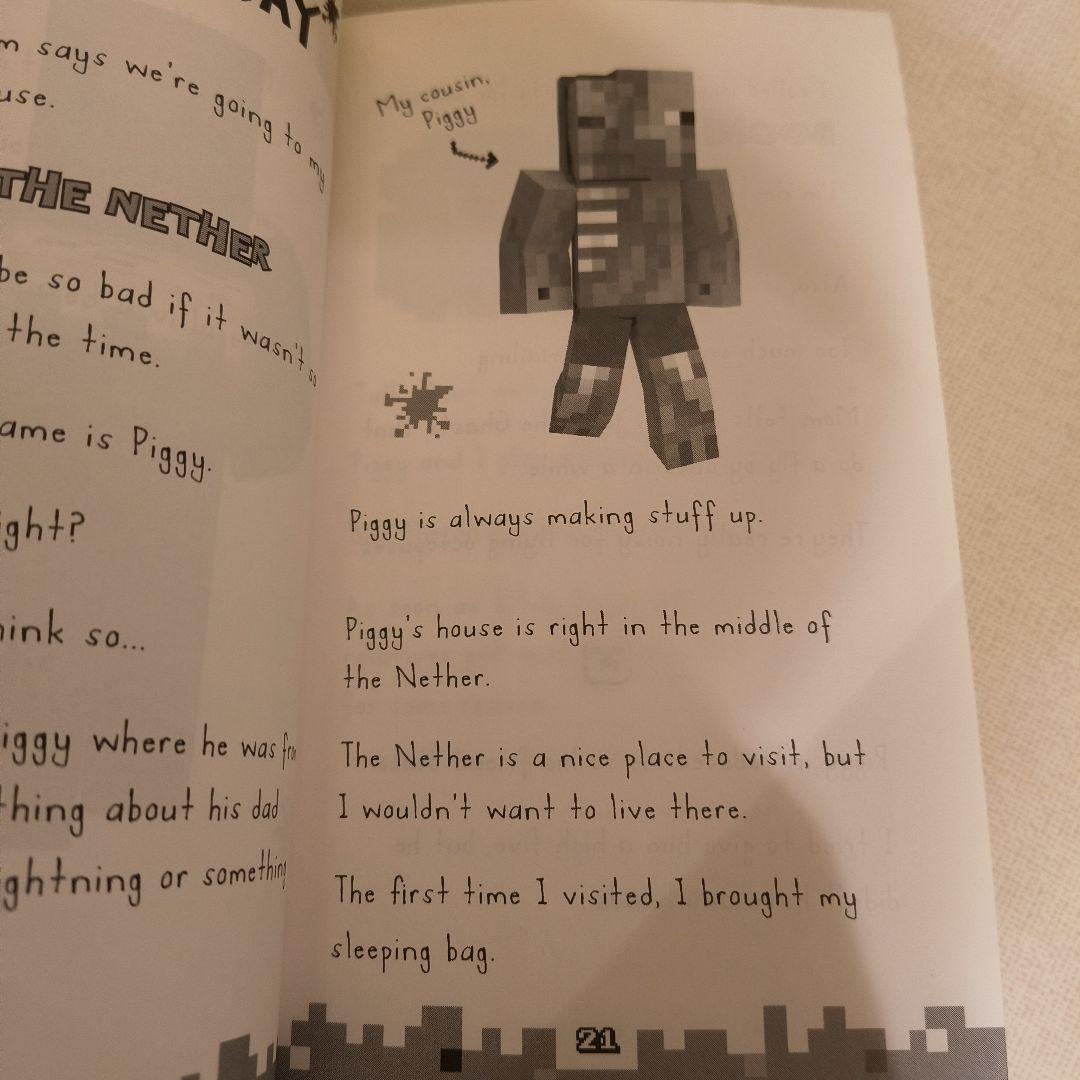 says we're going to my
THE NETHER
be so bad if it wasn't so
the time.
is Piggy.
so...
where he was
thing about his dad
or something
My cousin,
Piggy
Piggy is always making stuff up.
Piggy's house is right in the middle of
the Nether.
The Nether is a nice place to visit, but
I wouldn't want to live there.
The first time I visited, I brought my
sleeping bag.
21